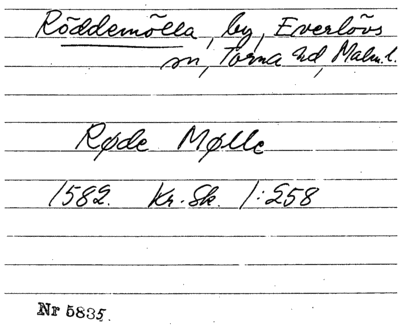 Röddemölla, by, Everlövs
sn, Torna hd, Malm. l.
Røde Mølle
1582. Kr. Sk. 1:258
Nr 5835.